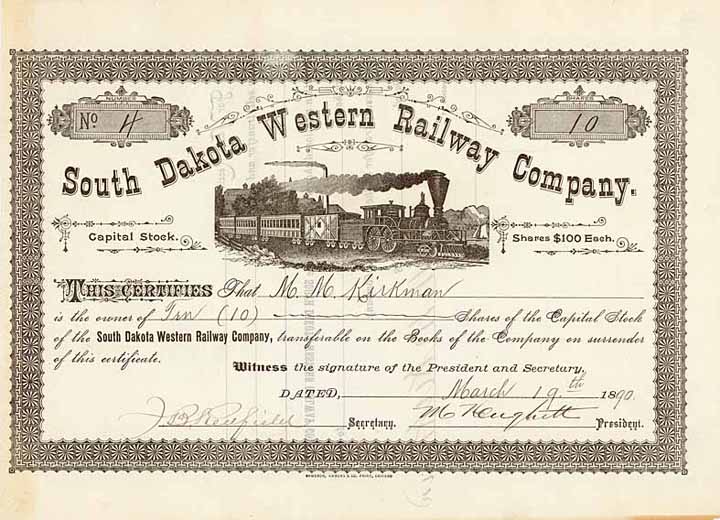 NUMBER
No 4
SHARES
10
South Dakota Western Railway Company.
Capital Stock.
Shares $100 Each.
THIS CERTIFIES That M. M. Kirkman
is the owner of Ten (10) Shares of the Capital Stock
of the South Dakota Western Railway Company, transferable on the Books of the Company on surrender
of this certificate.
Witness the signature of the President and Secretary,
DATED, March 19th 1890.
J B Redfield Secretary. M Hughitt President.